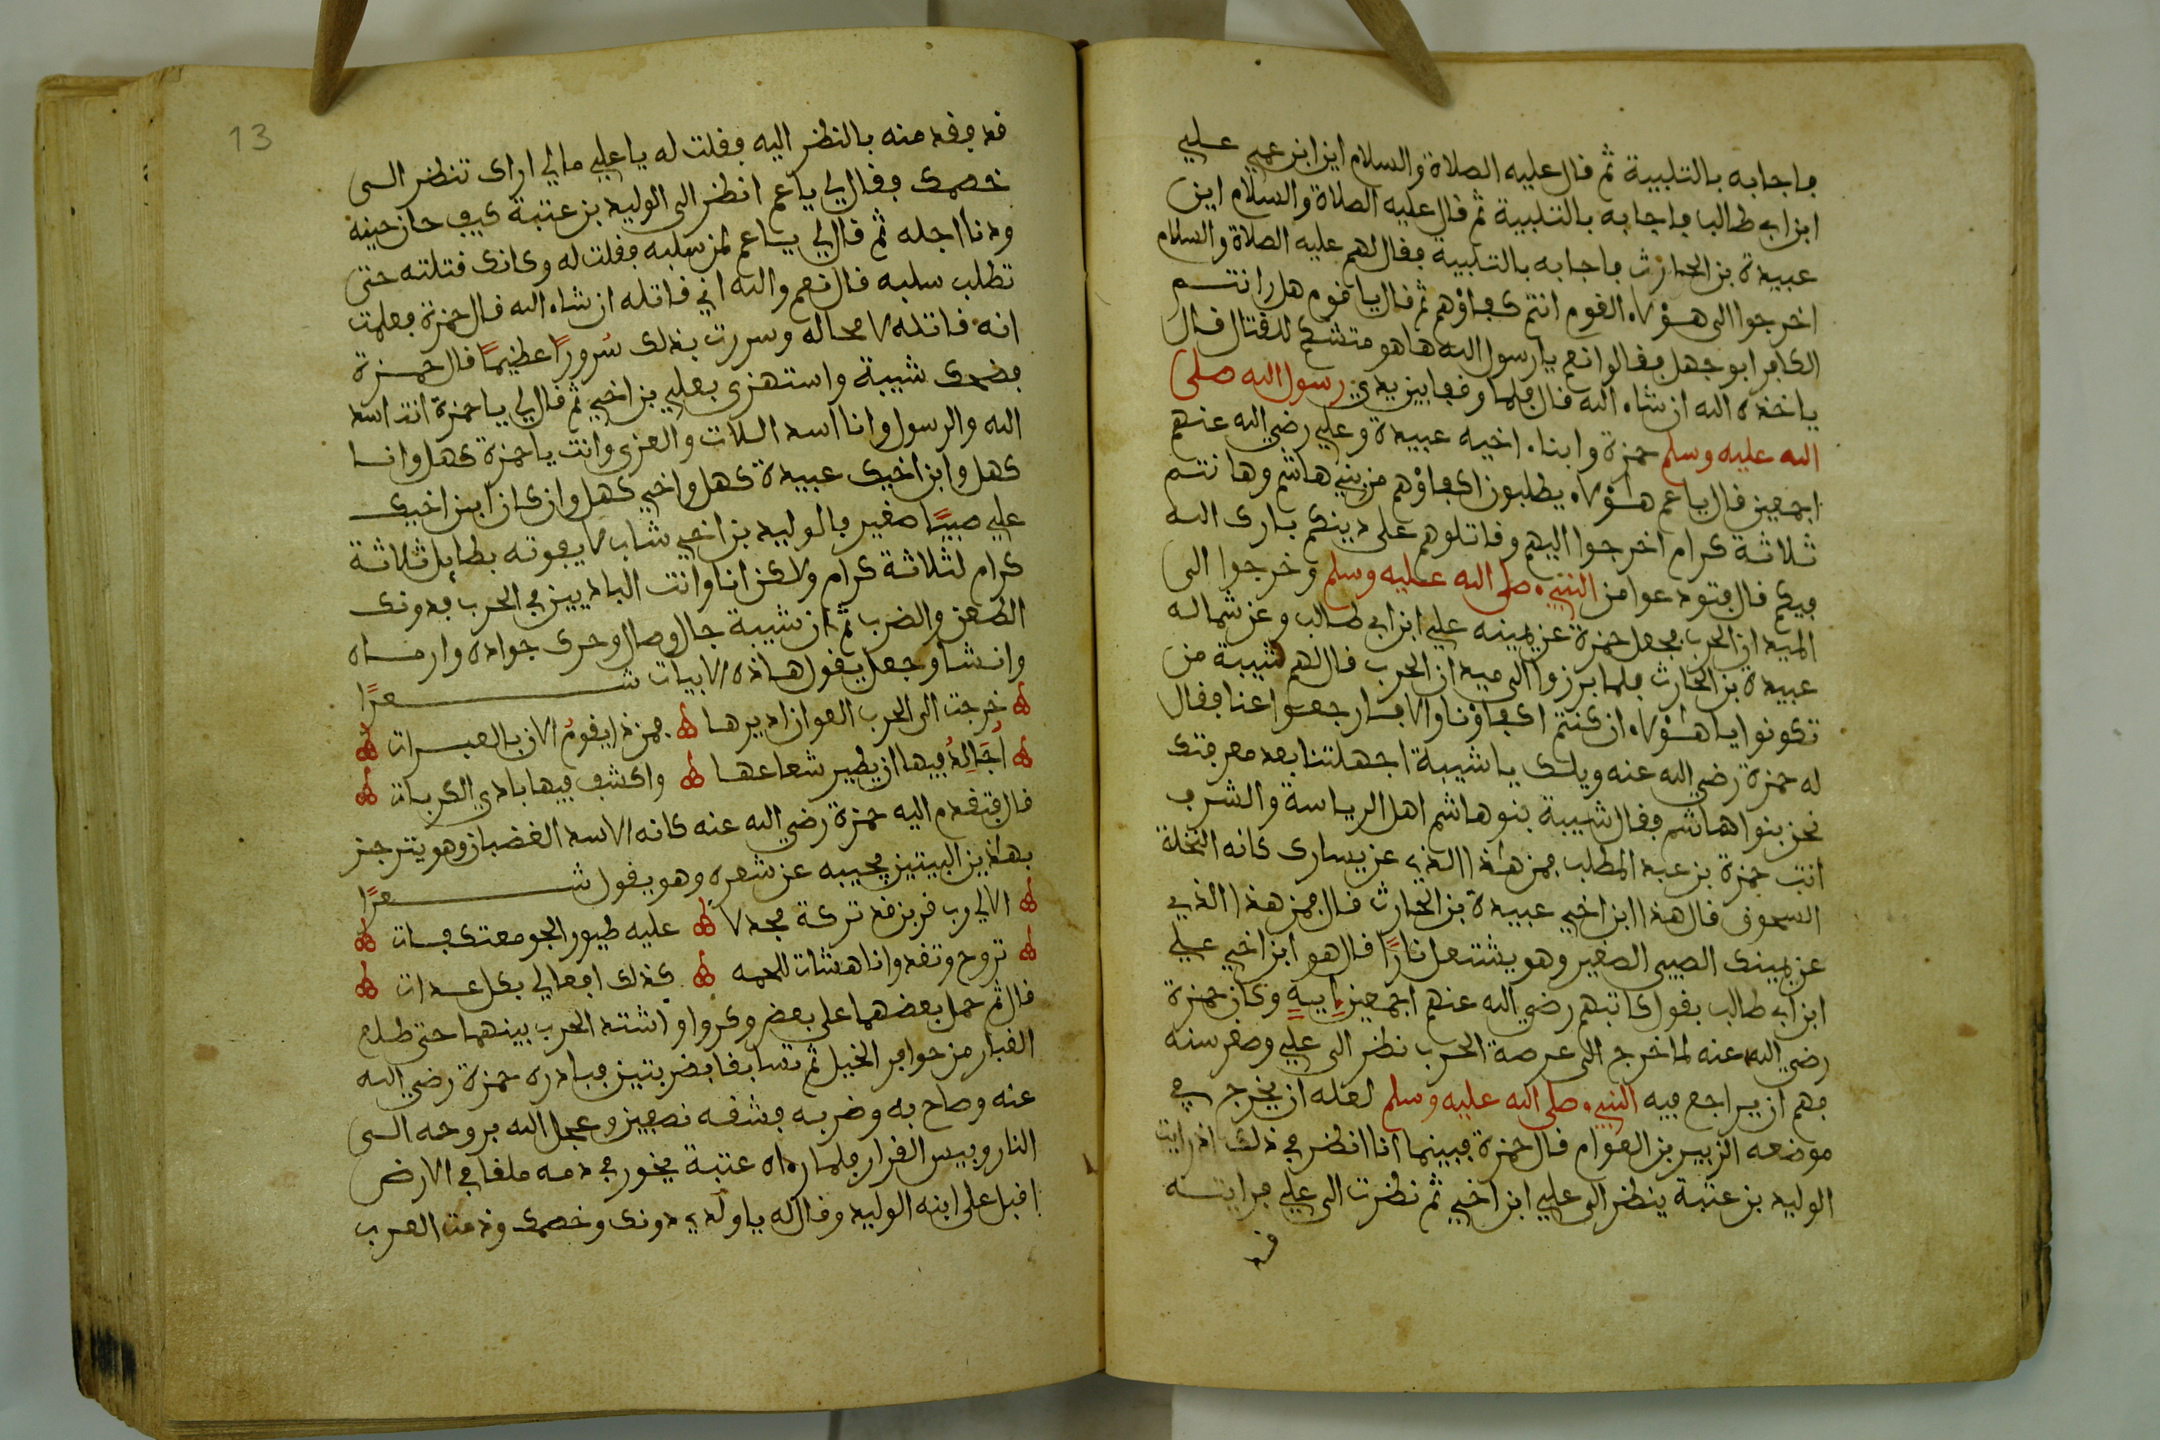 فاجابه بالتلبية ثم قال عليه الصلاة والسلام اين ابن عمي علي
ابن ابي طالب فاجابه بالتلبية ثم قال عليه الصلاة والسلام اين
عبيدة بن الحارث فاجابه بالتلبية فقال لهم عليه الصلاة والسلام
اخرجوا الى هؤلاء القوم انتم كفاؤهم ثم قال يا قوم هل رانتم
الكافر ابو جهل فقالوا نعم يا رسول الله ها هو متشكي للقتال قال
ياخذه الله ان شاء الله قال فلما وقفا بين يدي رسول الله صلى
الله عليه وسلم حمزة وابناء اخيه عبيدة وعلي رضي الله عنهم
اجمعين قال يا عم هاؤلاء يطلبون اكفاؤهم من بني هاشم وها نتم
ثلاثة كرام اخرجوا اليهم وقاتلوهم على دينكم بارك الله
فيكم قال فتودعوا من النبيء صلى الله عليه وسلم وخرجوا الى
الميدان الحرب فجعل حمزة عن يمينه علي ابن ابي طالب وعن شماله
عبيدة بن الحارث فلما برزوا الى ميدان الحرب قال لهم شيبة من
تكونوا يا هاؤلاء ان كنتم اكفاؤنا والا فارجعوا عنا فقال
له حمزة رضي الله عنه ويلك يا شيبة اجهلتنا بعد معرفتك
نحن بنوا هاشم فقال شيبة بنو هاشم اهل الرياسة والشرف
انت حمزة بن عبد المطلب فمن هاذا الذي عن يسارك كانه النخلة
السحوق قال هذا ابن اخي عبيدة بن الحارث قال فمن هذا الذي
عن يمينك الصبي الصغير وهو يشتعل نارًا قال هو ابن اخي علي
ابن ابي طالب يقول كاتبهم رضي الله عنهم اجمعين وكان حمزة
رضي الله عنه لما خرج الى عرصة الحرب نظر الى علي وصغر سنه
فهم ان يراجع فيه النبيء صلى الله عليه وسلم لعله ان يخرج في
موضعه الزبير بن العوام قال حمزة فبينما انا انظر في ذلك اذ رايت
الوليد بن عتبة ينظر الى علي ابن اخي ثم نظرت الى علي فرايته
قد
13
قد فقد منه بالنظر اليه فقلت له يا علي مالي اراك تنظر الى
خصمك فقال لي يا عم انظر الى الوليد بن عتبة كيف حان حينه
ودنا اجله ثم قال لي يا عم لمن سلبه فقلت له وكانك قتلته حتى
تطلب سلبه قال نعم والله اني قاتله ان شاء الله قال حمزة فعلمت
انه قاتله لا محاله وسررت بذلك سُرورًا عظيمًا قال حمزة
فضحك شيبة واستهزى بعلي بن اخي ثم قال لي يا حمزة انت اسد
الله والرسول وانا اسد اللات والعزى وانت يا حمزة كهل وانا
كهل وابن اخيك عبيدة كهل واخي كهل وان كان ابن اخيك
علي صبيًا صغير فالوليد بن اخي شاب لا يفوته بطايل ثلاثة
كرام لثلاثة كرام ولاكن انا وانت الباديين في الحرب فدونك
الطعن والضرب ثم ان شيبة جال وصال وحرك جواده وارخاه
وانشا وجعل يقول هاذه الابيات شعرًا
خرجت الى الحرب العوان اديرها فمن ذا يقوم الان بالعبرات
اجَالِدُ فيها ان يطير شعاعها واكشف فيها بادي الكربات
قال فتقدم اليه حمزة رضي الله عنه كانه الاسد الغضبان وهو يترجز
بهاذين البيتين يجيبه عن شعره وهو يقول شعرًا
الا لي رب قرن قد تركة مجدلا عليه طيور الجو معتكفات
تروح وتغدوا ناهشات للحمه كذلك افعالي بكل عدات
قال ثم حمل بعضهما على بعض وكروا واشتد الحرب بينهما حتى طلع
الغبار من حوافر الخيل ثم تسابقا بضربتين فبادره حمزة رضي الله
عنه وصاح به وضربه فشقه نصفين وعجل الله بروحه الى
النار وبيس القرار فلما رءاه عتبة يخور في دمه ملقا في الارض
اقبل على ابنه الوليد وقال له يا ولدي دونك وخصمك وذمت العرب